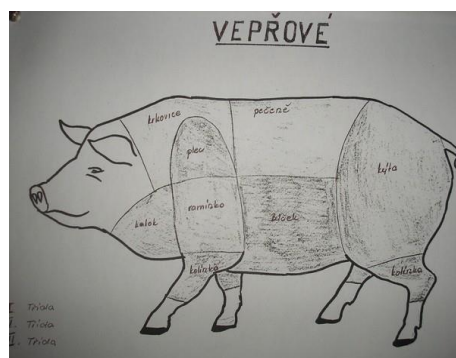 VEPŘOVÉ
krkovice
pečeně
plec
kýta
lalok
ramínko
bůček
kolínko
kolínko
I Třída
II. Třída
II. Třída